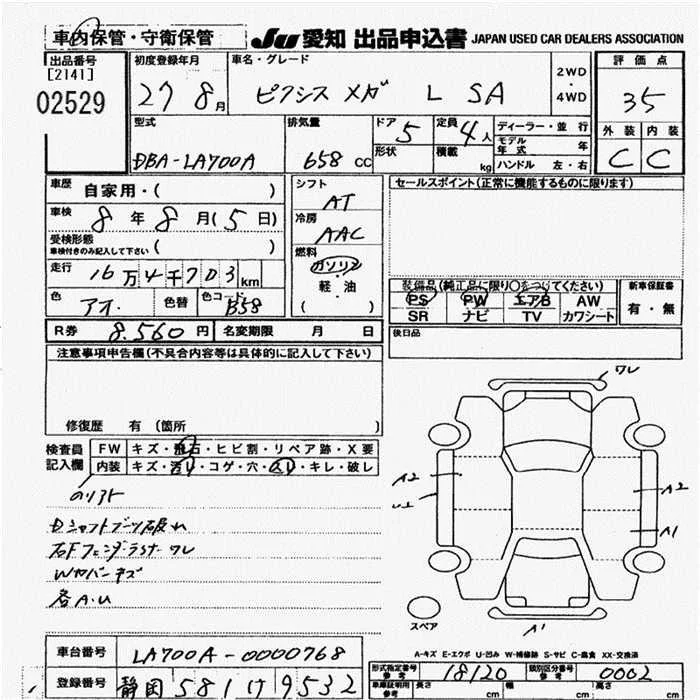 車内保管・守衛保管 JU 愛知 出品申込書 JAPAN USED CAR DEALERS ASSOCIATION
出品番号 初度登録年月 車名・グレード 2WD・4WD 評価点
[2141]
02529 27 8月 ピクシス メガ L SA 35
型式 排気量 ドア 5 定員 4人 ディーラー・並行 外装 内装
DBA-LA700A 658 CC 形状 積載 kg モデル年式 年 C C
ハンドル 左・右
車歴 自家用・( ) シフト AT セールスポイント(正常に機能するものに限ります)
車検 8年 8月(5日) 冷房 AAC
受検形態 ( )
車検付きのみ記入して下さい
燃料 ガソリン
走行 16万4千703km 軽・油
装備品(純正品に限り○をつけてください) 新車保証書
色 アオ 色替 色コード B58 ( ) PS PW エアB AW 有・無
SR ナビ TV カワシート
R券 8,560円 名変期限 月 日 後日品
注意事項申告欄(不具合内容等は具体的に記入して下さい)
ワレ
修復歴 有(箇所 )
検査員記入欄 FW キズ・飛石・ヒビ割・リペア跡・X要
内装 キズ・汚レ・コゲ・穴・スレ・キレ・破レ
A2 A2
A1
Dシャフトブーツ破れ
右Fフェンダーライナーワレ
Wカバーキズ
各A.U
スペア A1
A-キズ E-エクボ U-凹み W-補修跡 S-サビ C-腐食 XX-交換済
車台番号 LA700A-0000768
型式指定番号 参考 18120 類別区分番号 参考 0002
登録番号 静岡 581 け 9532
車庫証明用 参考 長さ cm 幅 cm 高さ cm